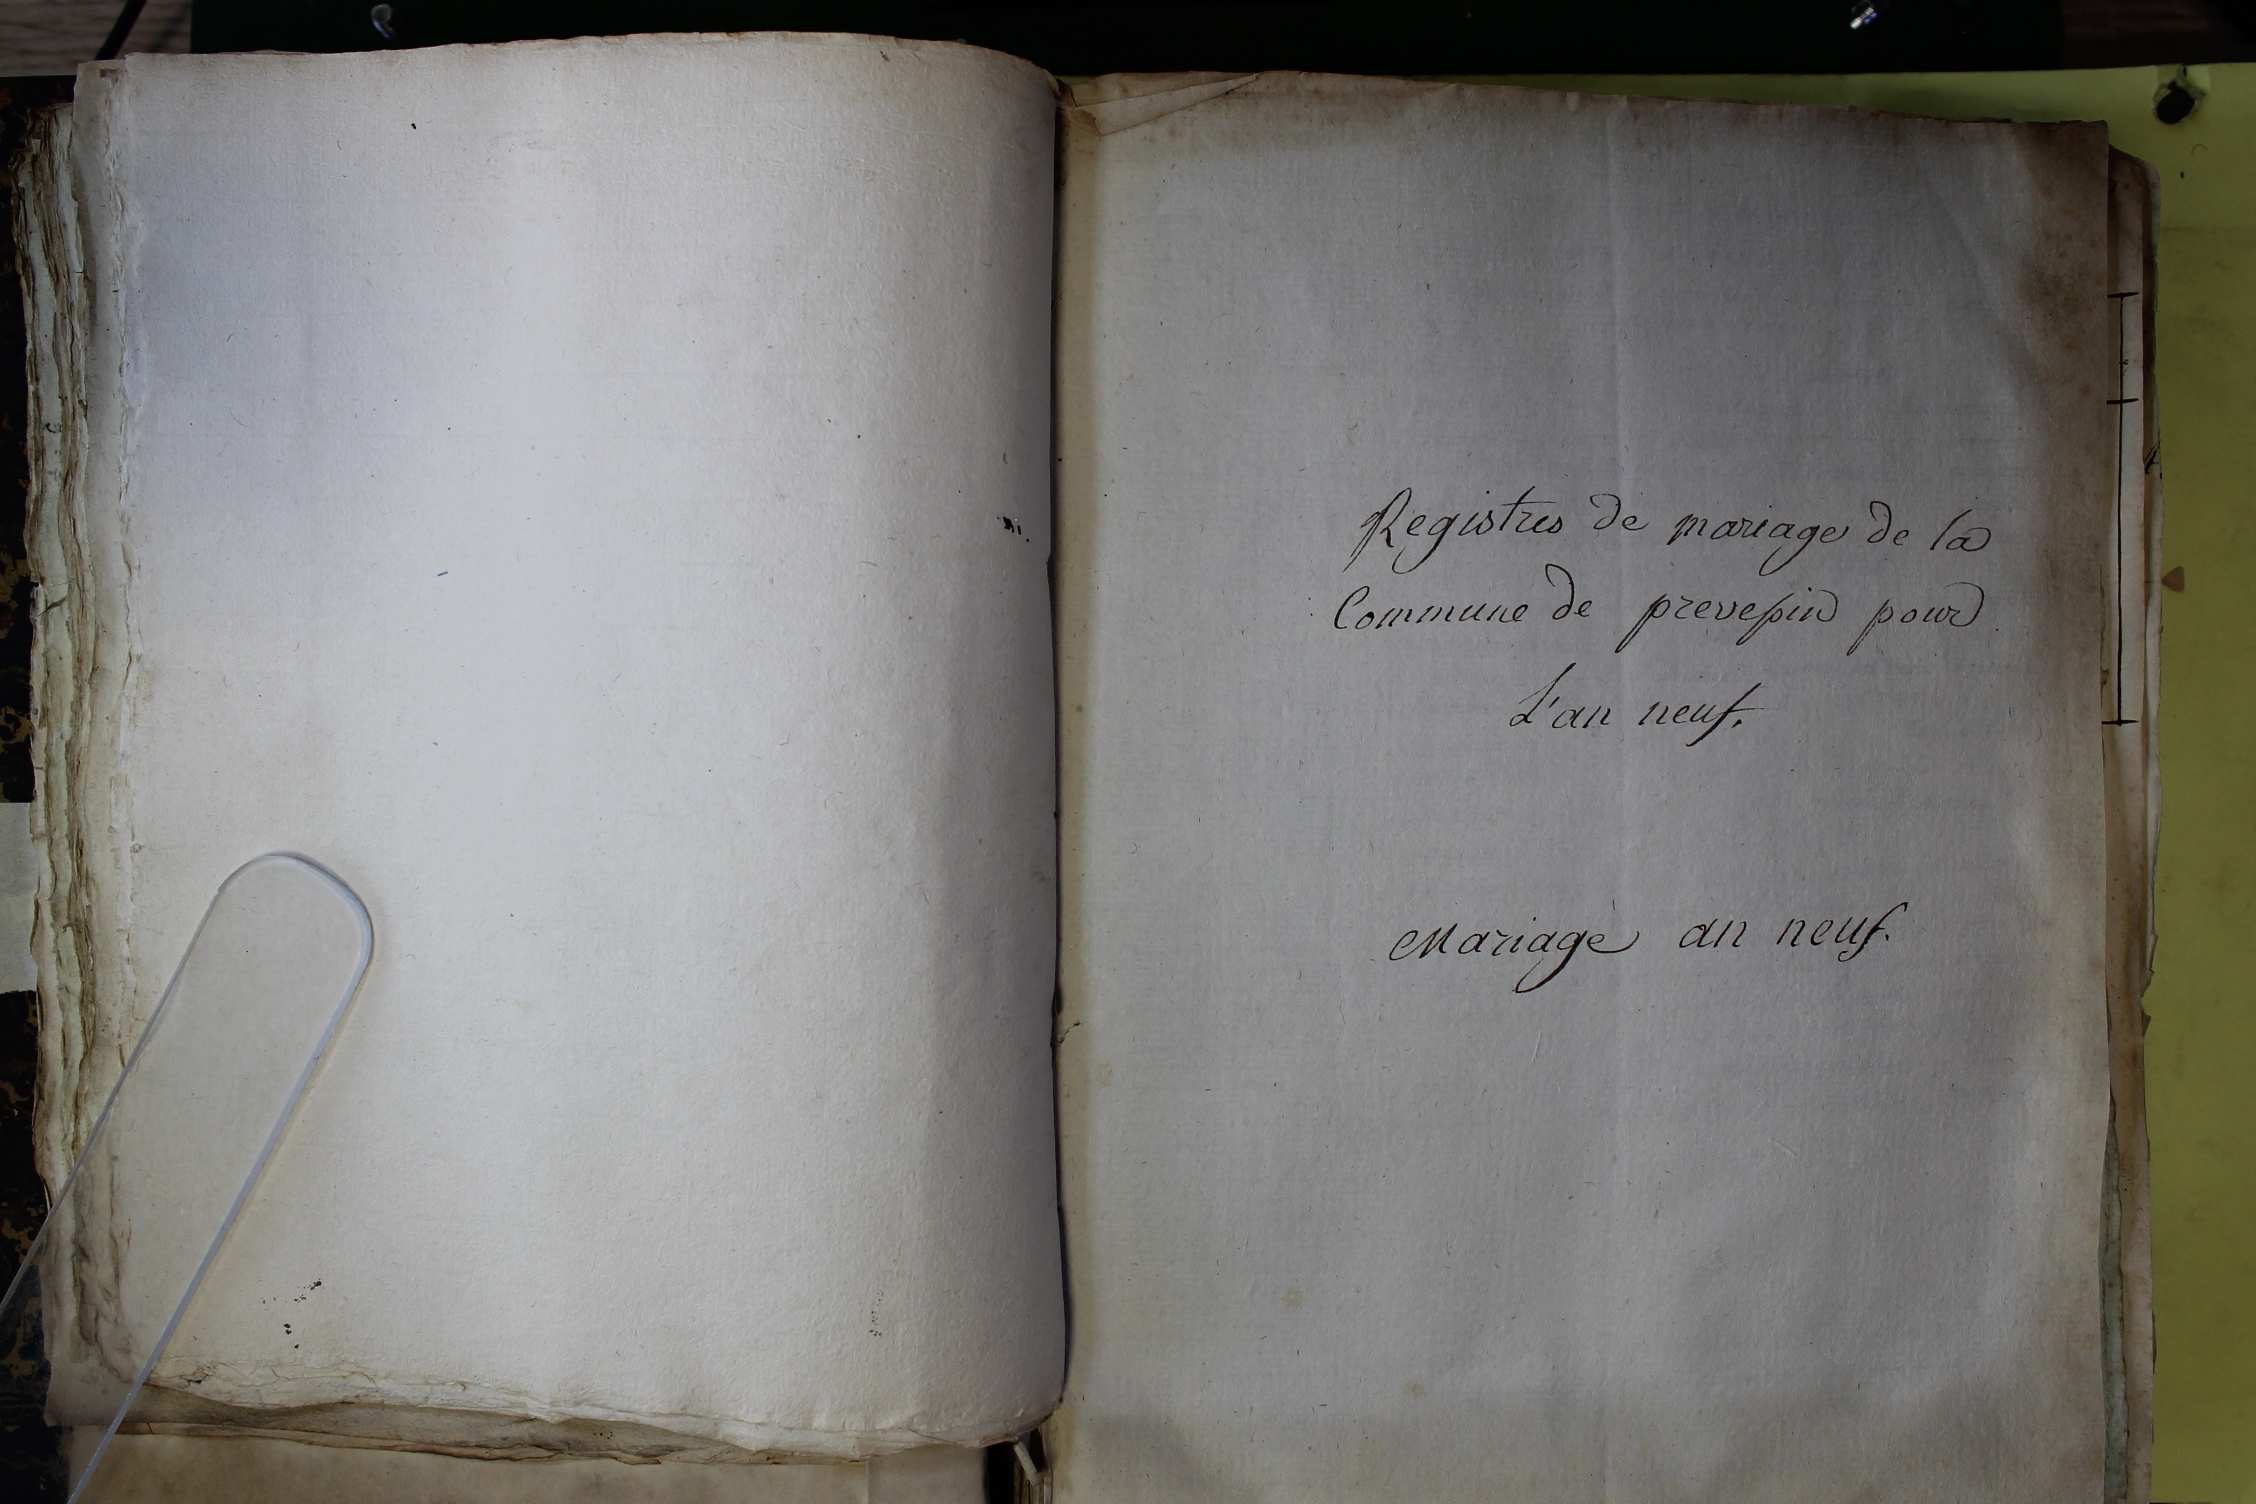 Registres de mariage de la
Commune de prevesin pour
L'an neuf.
Mariage an neuf.